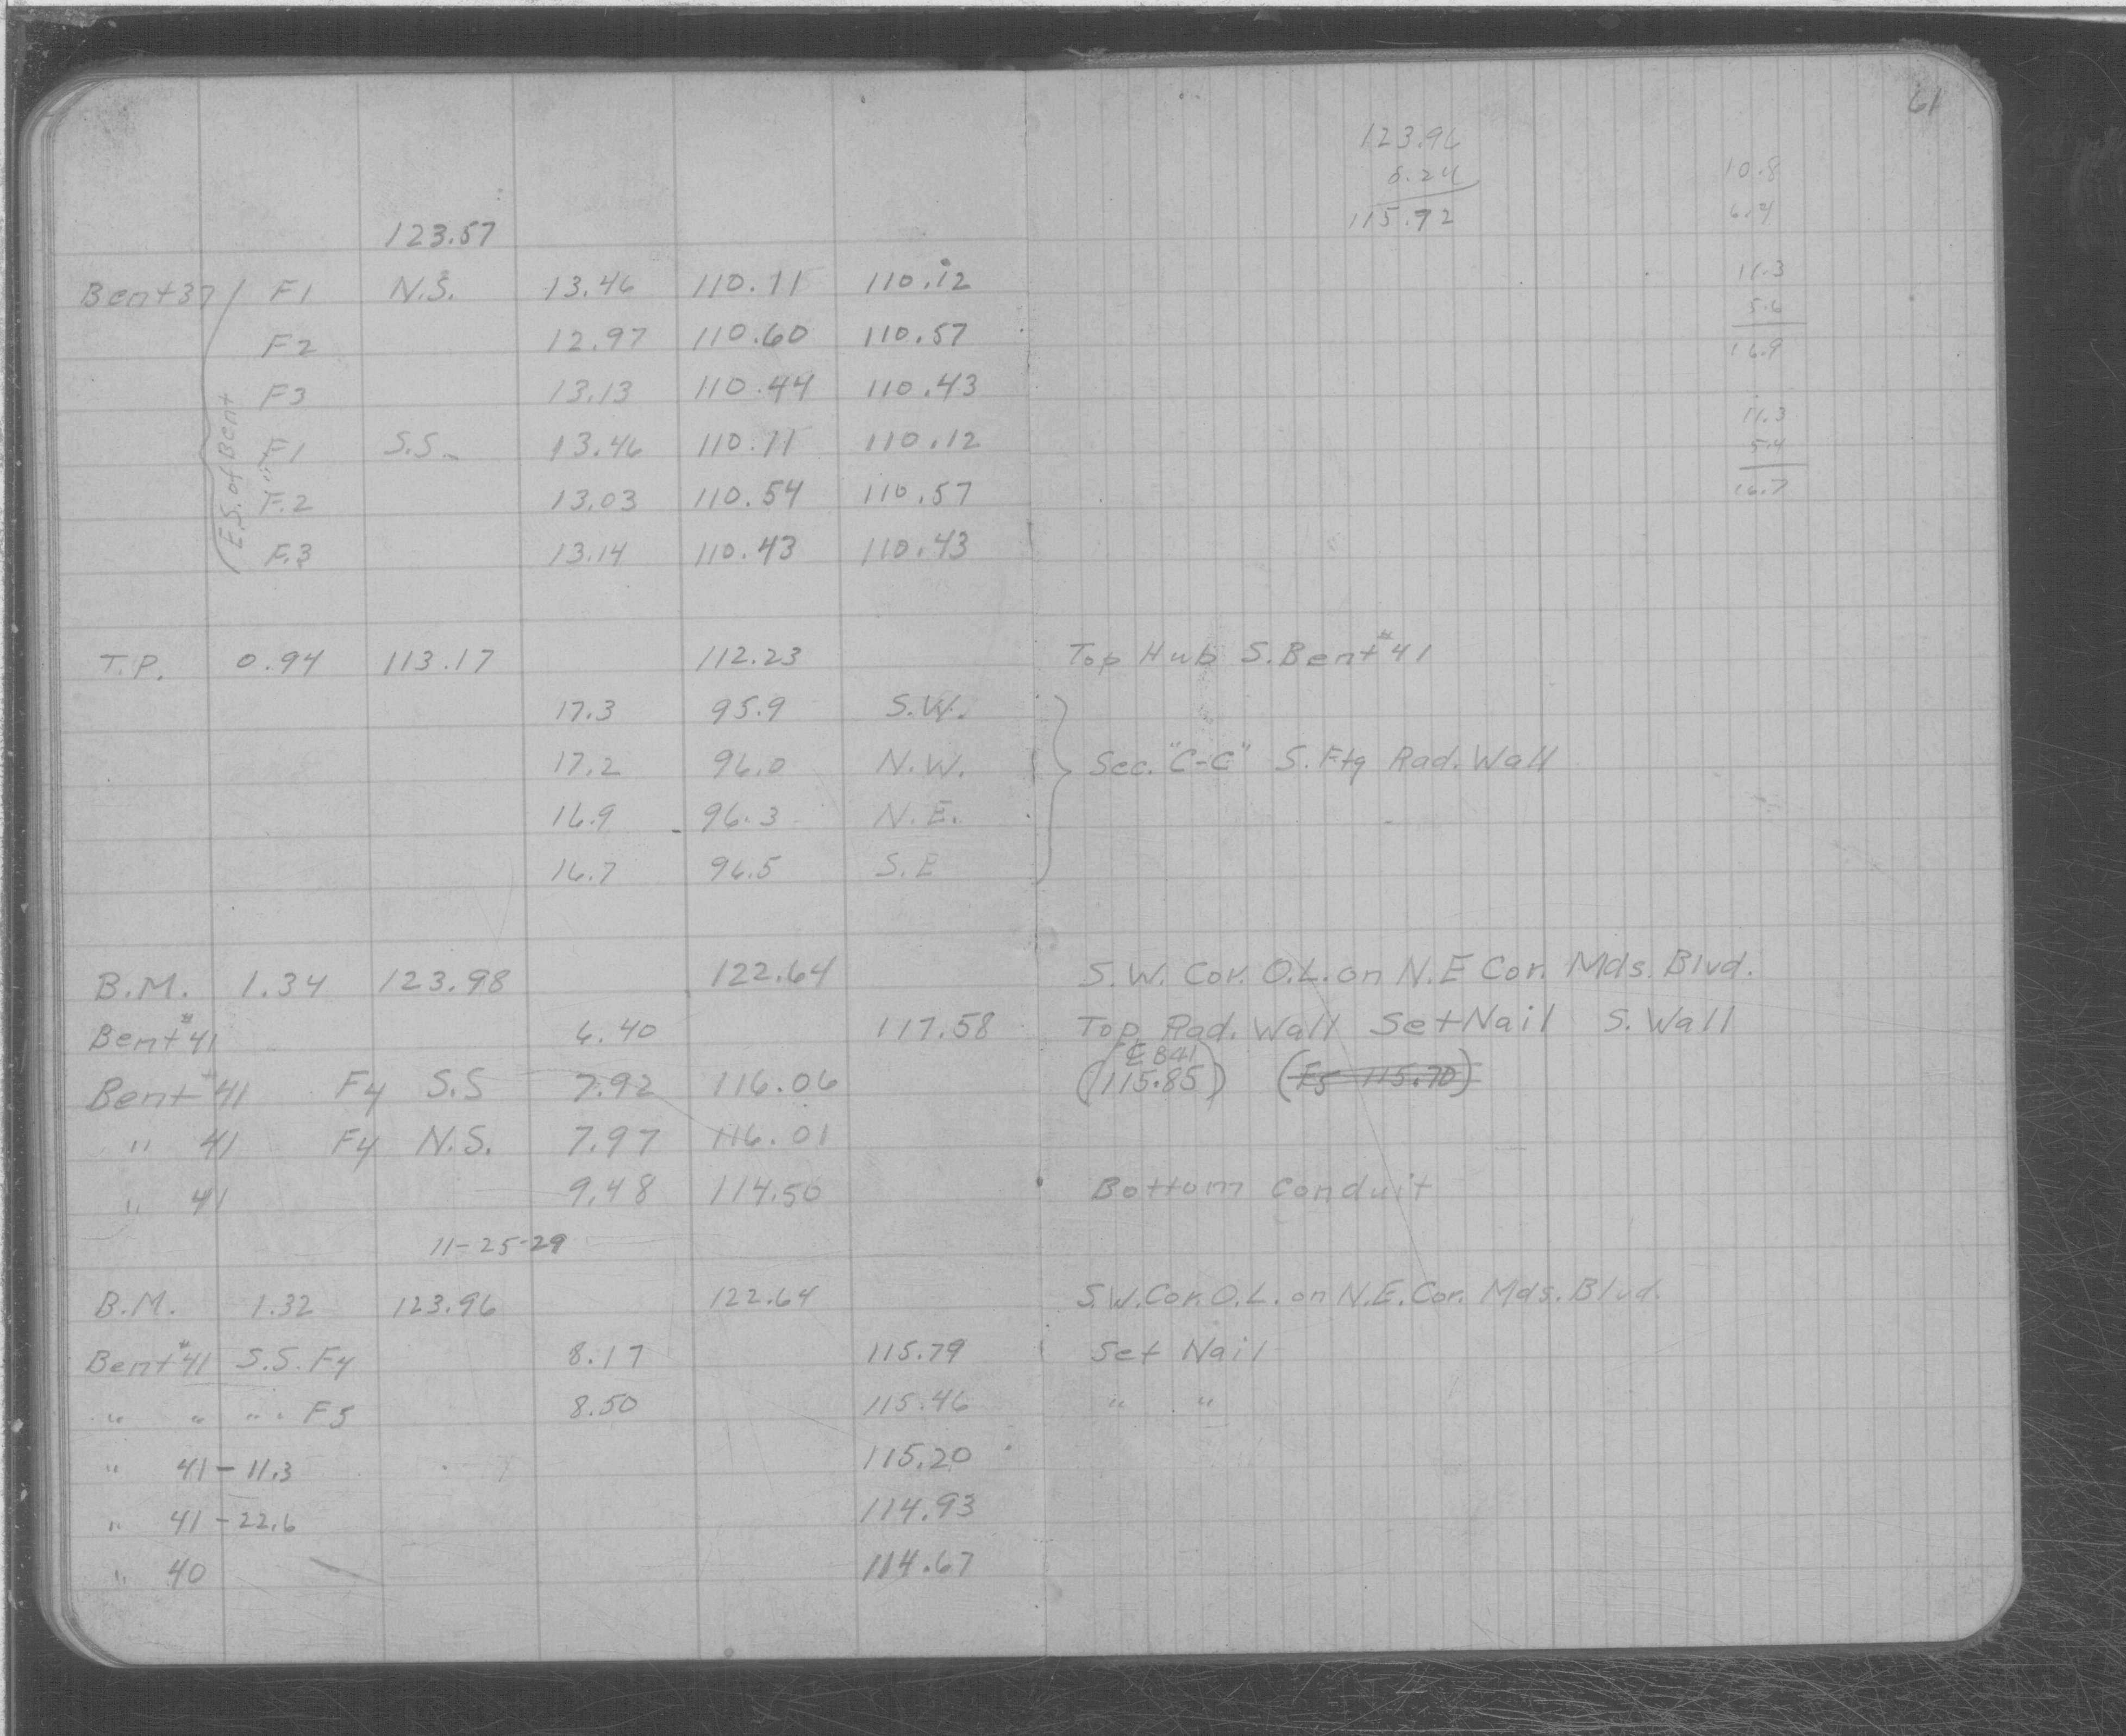 61
123.96
8.24
115.72
10.8
6.4
11.3
5.6
16.9
11.3
5.4
16.7
123.57
Bent 37 F1 N.S. 13.46 110.11 110.12
F2 12.97 110.60 110.57
F3 13.13 110.44 110.43
F1 S.S. 13.46 110.11 110.12
F.2 13.03 110.54 110.57
F.3 13.14 110.43 110.43
E.S. of Bent
T.P. 0.94 113.17 112.23 Top Hub S. Bent #41
17.3 95.9 S.W.
17.2 96.0 N.W. Sec. "C-C" S. Ftg Rad. Wall
16.9 96.3 N.E.
16.7 96.5 S.E
B.M. 1.34 123.98 122.64 S.W. Cor. O.L. on N.E Cor. Mds. Blvd.
Bent #41 6.40 117.58 Top Rad. Wall Set Nail S. Wall
Bent #41 F4 S.S 7.92 116.06 (℄ B41 115.85) (F5 115.70)
" 41 F4 N.S. 7.97 116.01
" 41 9.48 114.50 Bottom Conduit
11-25-29
B.M. 1.32 123.96 122.64 S.W. Cor. O.L. on N.E. Cor. Mds. Blvd.
Bent #41 S.S. F4 8.17 115.79 Set Nail
" " " F5 8.50 115.46 " "
" 41 - 11.3 115.20
" 41 - 22.6 114.93
" 40 114.67